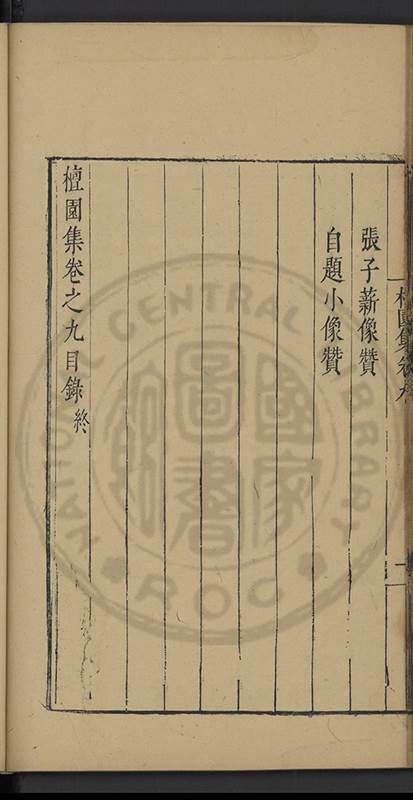 張子薪像贊
自題小像贊
檀園集卷之九目錄終
國家圖書館
NATIONAL CENTRAL LIBRARY
ROC